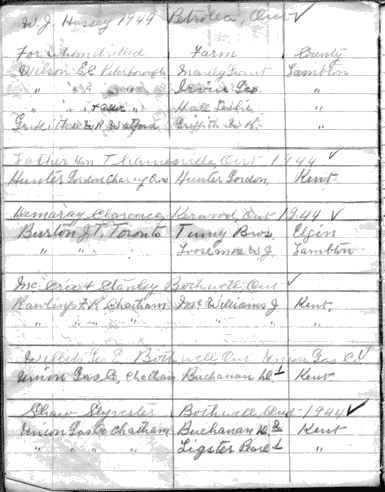 W. J. Hussey 1944 Petrolea, Ont ✓
For whom drilled Farm County
Wilson E.C. Peterborough Manley Grant Lambton
" " " Irvine Geo "
" " " Hall Leslie "
Griffith W.R. Watford Griffith W.R. "
Thamesville, Ont 1944 ✓
Hunter Gordon Charing Cross Hunter Gordon. Kent.
Demaray Clarence, Kerwood, Ont 1944 ✓
Burton J.T. Toronto Tinny Bros. Elgin
" " " Loosemore W J. Lambton
Stanley Bothwell Ont ✓
Rawlings F.R. Chatham McWilliams J. Kent.
" " " " " "
Willett Geo E. Bothwell Ont Union Gas Co ✓
Union Gas Co, Chatham Buchanan Kent.
Shaw Sylvester Bothwell Ont 1944 ✓
Union Gas Co Chatham Buchanan Kent
" " " " Ligster Pearl "